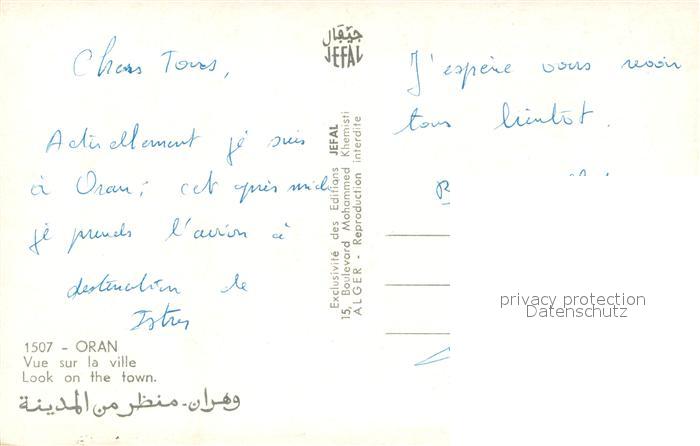 Chers Tous,
Actuellement je suis
à Oran; cet après midi
je prends l'avion à
destination de
Istres
1507 - ORAN
Vue sur la ville
Look on the town.
وهران - منظر من المدينة
جيفال
JEFAL
Exclusivité des Editions JEFAL
15, Boulevard Mohammed Khemisti
ALGER - Reproduction interdite
J'espère vous revoir
tous bientôt.
privacy protection
Datenschutz